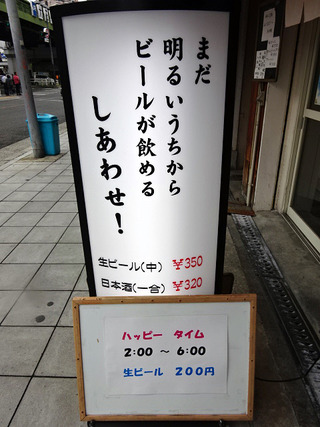 まだ
明るいうちから
ビールが飲める
しあわせ!
生ビール(中) ¥350
日本酒(一合) ¥320
ハッピー タイム
2:00 ～ 6:00
生ビール 200円